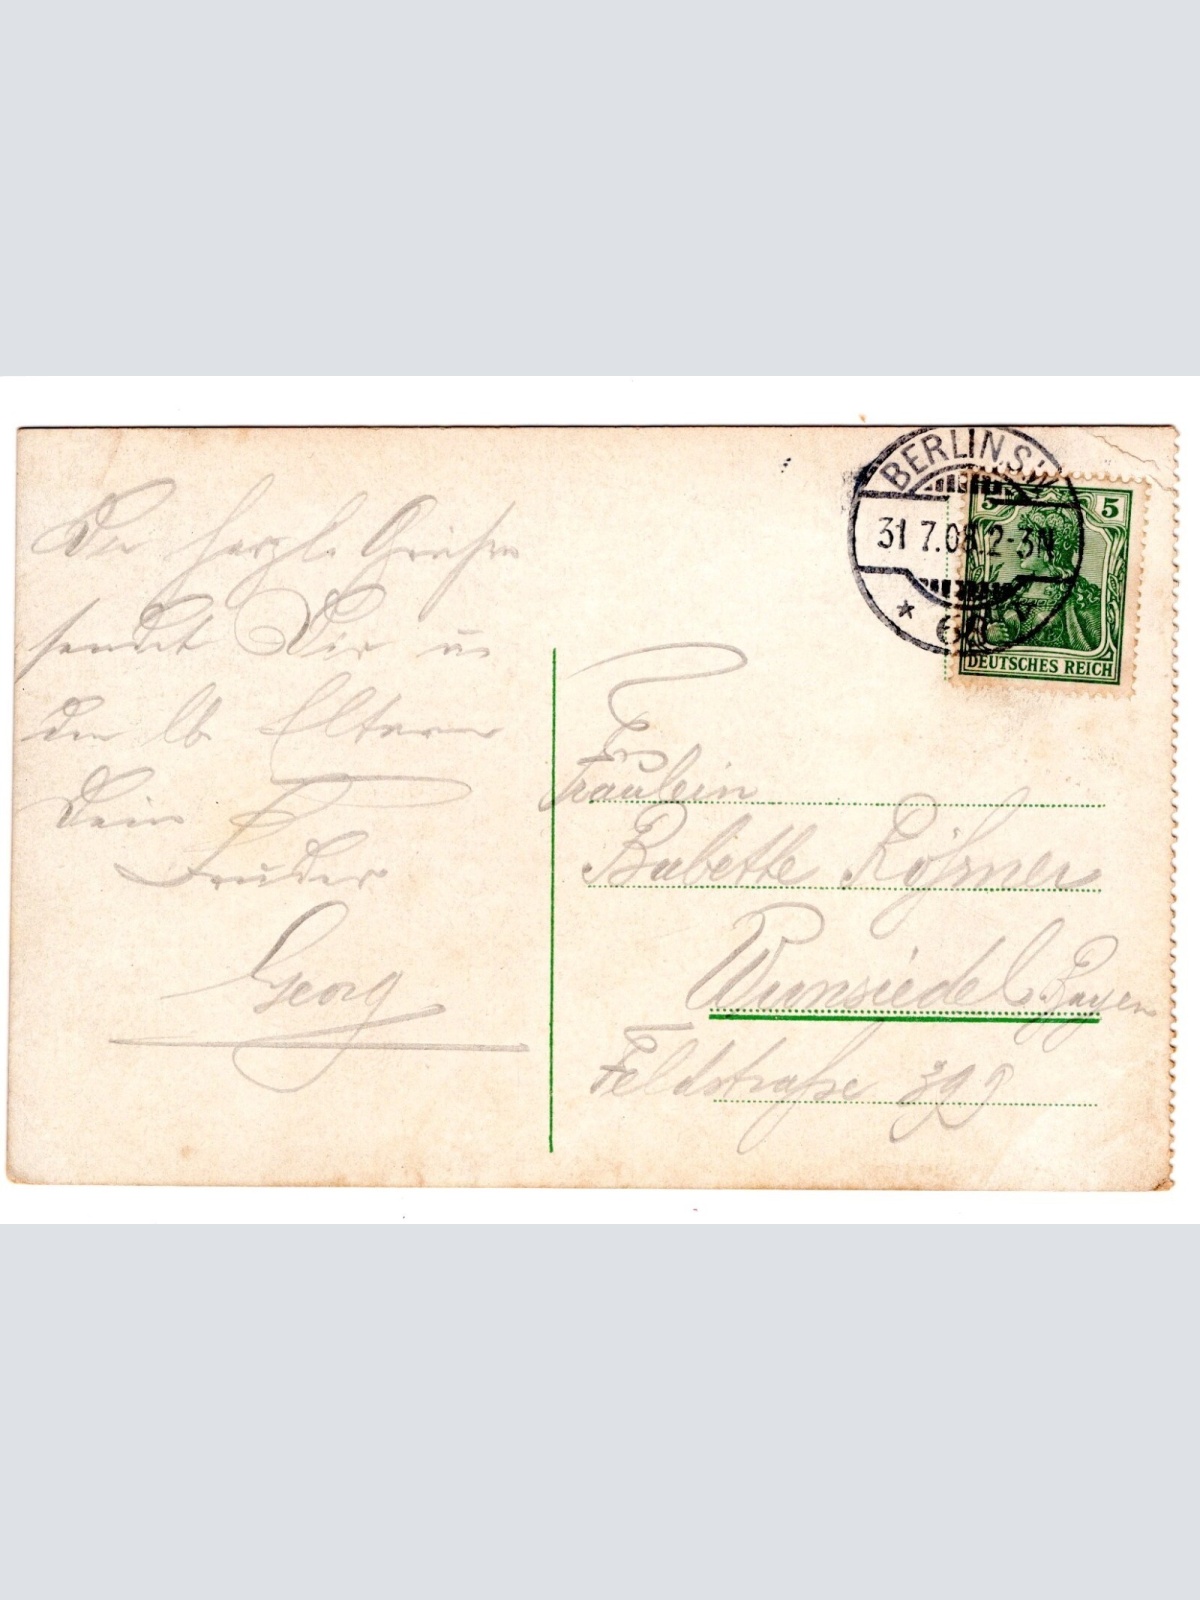 Die herzl. Grüße
sendet Dir u.
den lb. Eltern
Dein
Bruder
Georg
BERLIN S.W.
31.7.08. 2-3N
* 68
5 5
DEUTSCHES REICH
Fräulein
Babette
Wunsiedel, Bayern
Feldstraße 399